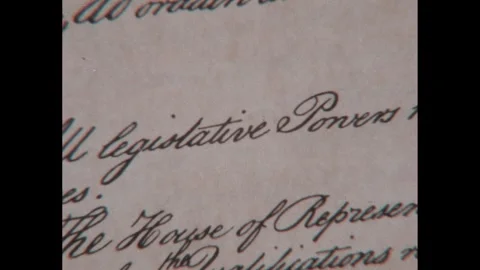 do ordain
All legislative Powers
es.
The House of Represen
the
Qualifications